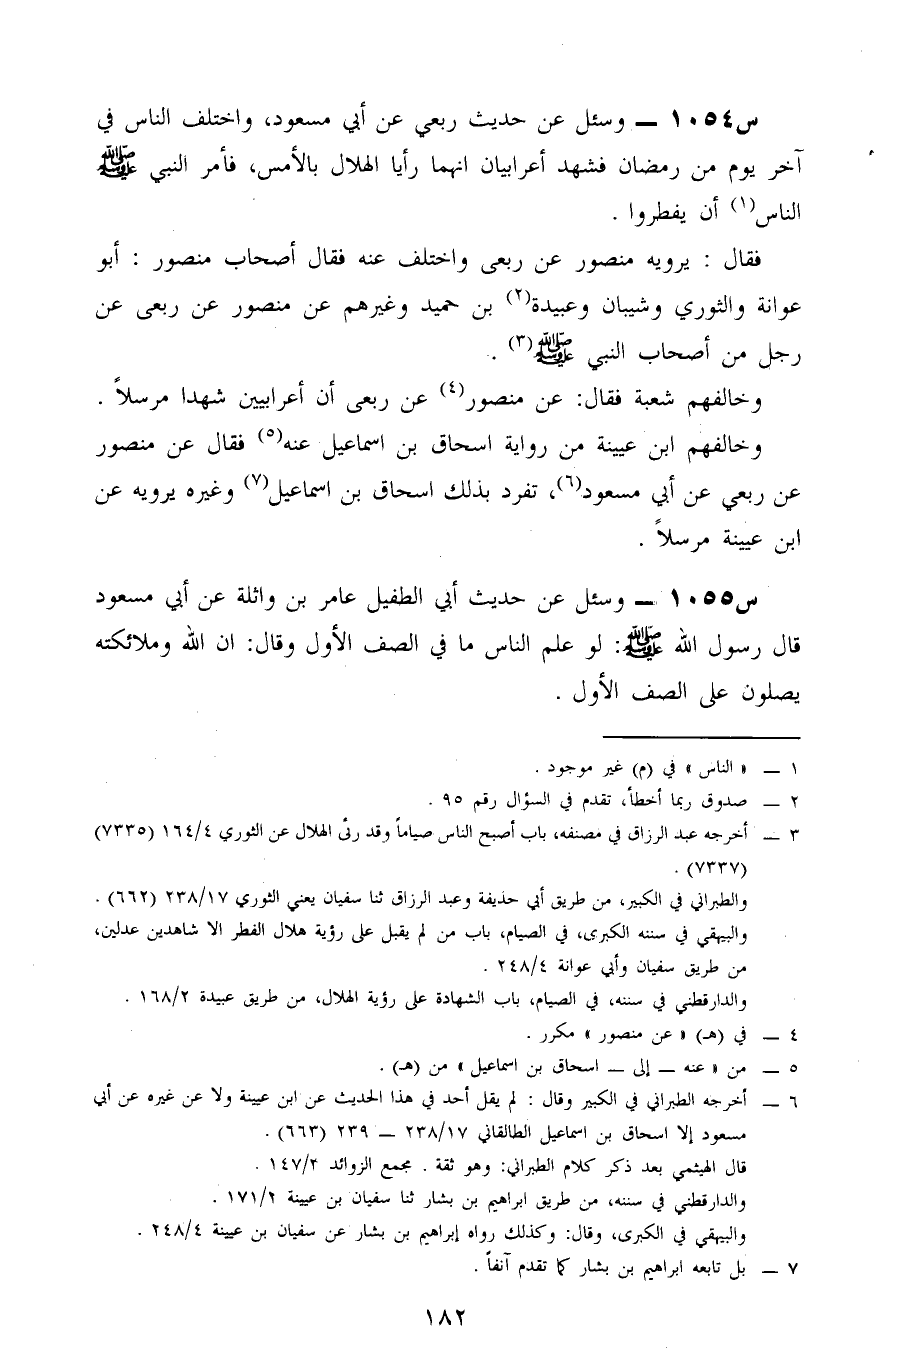 س١٠٥٤ ــ وسئل عن حديث ربعي عن أبي مسعود، واختلف الناس في
آخر يوم من رمضان فشهد أعرابيان انهما رأيا الهلال بالأمس، فأمر النبي ﷺ
الناس(١) أن يفطروا .
فقال : يرويه منصور عن ربعى واختلف عنه فقال أصحاب منصور : أبو
عوانة والثوري وشيبان وعبيدة(٢) بن حميد وغيرهم عن منصور عن ربعى عن
رجل من أصحاب النبي ﷺ(٣) .
وخالفهم شعبة فقال: عن منصور(٤) عن ربعى أن أعرابيين شهدا مرسلاً .
وخالفهم ابن عيينة من رواية اسحاق بن اسماعيل عنه(٥) فقال عن منصور
عن ربعي عن أبي مسعود(٦)، تفرد بذلك اسحاق بن اسماعيل(٧) وغيره يرويه عن
ابن عيينة مرسلاً .
س١٠٥٥ ــ وسئل عن حديث أبي الطفيل عامر بن واثلة عن أبي مسعود
قال رسول الله ﷺ: لو علم الناس ما في الصف الأول وقال: ان الله وملائكته
يصلون على الصف الأول .
١ ــ « الناس » في (م) غير موجود .
٢ ــ صدوق ربما أخطأ، تقدم في السؤال رقم ٩٥ .
٣ ــ أخرجه عبد الرزاق في مصنفه، باب أصبح الناس صياماً وقد رئى الهلال عن الثوري ١٦٤/٤ (٧٣٣٥)
(٧٣٣٧) .
والطبراني في الكبير، من طريق أبي حذيفة وعبد الرزاق ثنا سفيان يعني الثوري ٢٣٨/١٧ (٦٦٢) .
والبيهقي في سننه الكبرى، في الصيام، باب من لم يقبل على رؤية هلال الفطر الا شاهدين عدلين،
من طريق سفيان وأبي عوانة ٢٤٨/٤ .
والدارقطني في سننه، في الصيام، باب الشهادة على رؤية الهلال، من طريق عبيدة ١٦٨/٢ .
٤ ــ في (هـ) « عن منصور » مكرر .
٥ ــ من « عنه ــ إلى ــ اسحاق بن اسماعيل » من (هـ) .
٦ ــ أخرجه الطبراني في الكبير وقال : لم يقل أحد في هذا الحديث عن ابن عيينة ولا عن غيره عن أبي
مسعود إلا اسحاق بن اسماعيل الطالقاني ٢٣٨/١٧ ــ ٢٣٩ (٦٦٣) .
قال الهيثمي بعد ذكر كلام الطبراني: وهو ثقة . مجمع الزوائد ١٤٧/٣ .
والدارقطني في سننه، من طريق ابراهيم بن بشار ثنا سفيان بن عيينة ١٧١/٢ .
والبيهقي في الكبرى، وقال: وكذلك رواه إبراهيم بن بشار عن سفيان بن عيينة ٢٤٨/٤ .
٧ ــ بل تابعه ابراهيم بن بشار كما تقدم آنفاً .
١٨٢